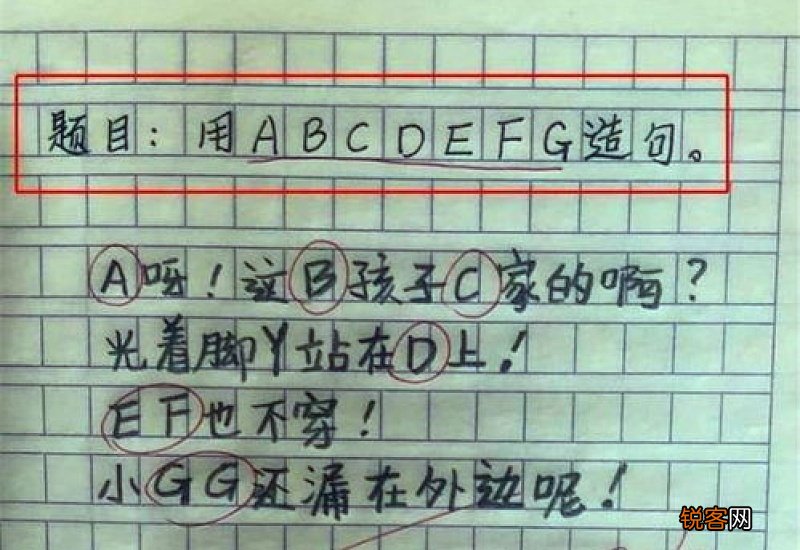 题目：用ABCDEFG造句。
A呀！这B孩子C家的啊？
光着脚丫站在D上！
EF也不穿！
小GG还漏在外边呢！
锐客网